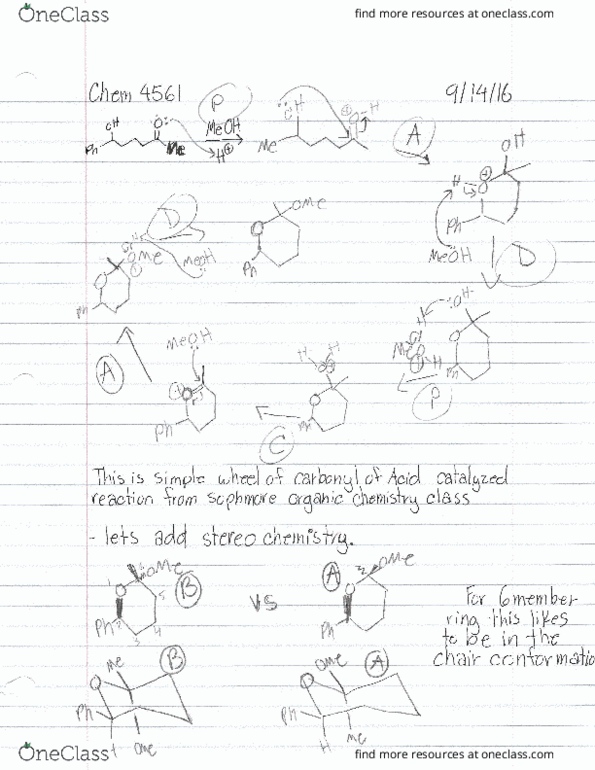 OneClass
find more resources at oneclass.com
Chem 4561
9/14/16
P
OH
O:
MeOH
H⊕
Ph
Me
:OH
⊕O-H
Me
A
OH
H
⊕
O
Ph
MeOH
D
D
OMe
O
Ph
OMe
MeOH
O
Ph
:OH
H
O
Me
H
Ph
P
H H
O
Ph
C
MeOH
⊕O
Ph
A
This is simple wheel of carbonyl of Acid catalyzed
reaction from sophmore organic chemistry class
- lets add stereo chemistry.
1
OMe
O
B
5
Ph
3
4
VS
A
2
OMe
O
Ph
For 6 member
ring this likes
to be in the
chair conformatio
Me
B
O
Ph
OMe
OMe
A
O
Ph
H
Me
OneClass
find more resources at oneclass.com